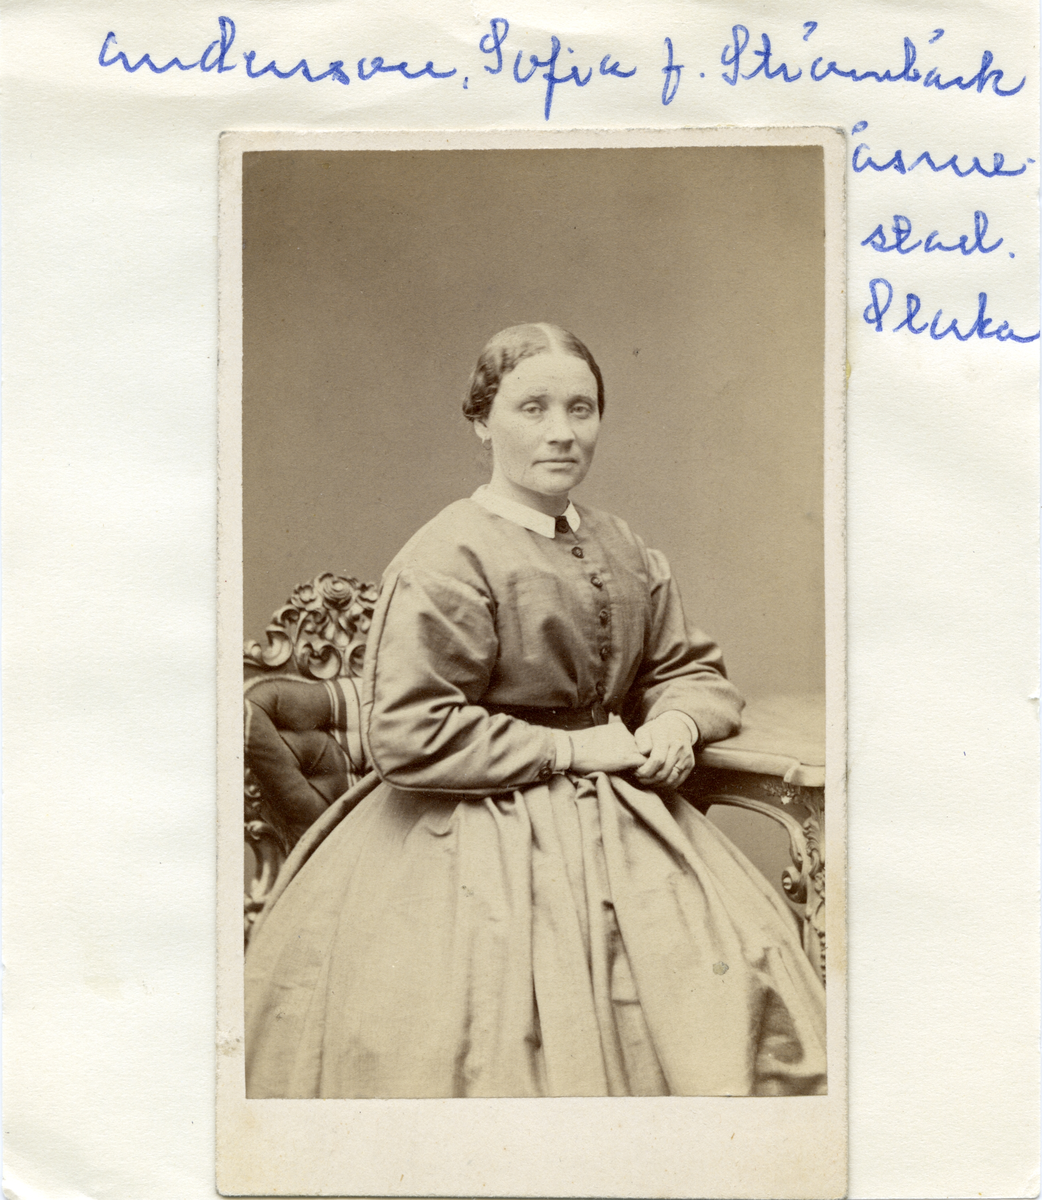 Andersson, Sofia f. Strömbäck
åsme-
stad.